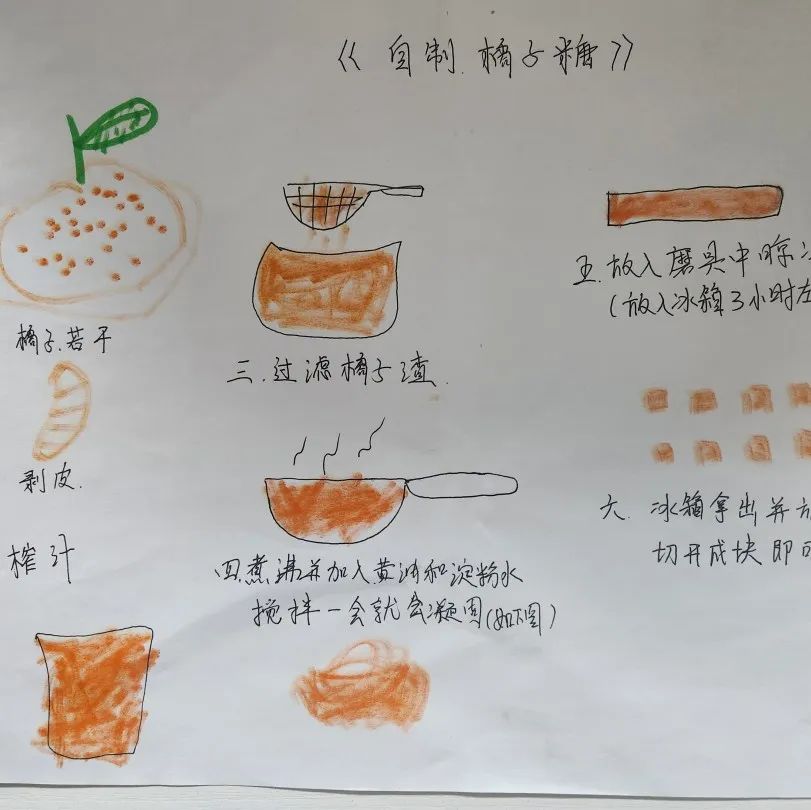 《自制橘子糖》
橘子.若干
剥皮.
榨汁
三.过滤橘子渣.
四.煮沸并加入黄油和淀粉水
搅拌一会就会凝固(如下图)
五.放入磨具中晾
(放入冰箱3小时左
六.冰箱拿出并
切开成块即可